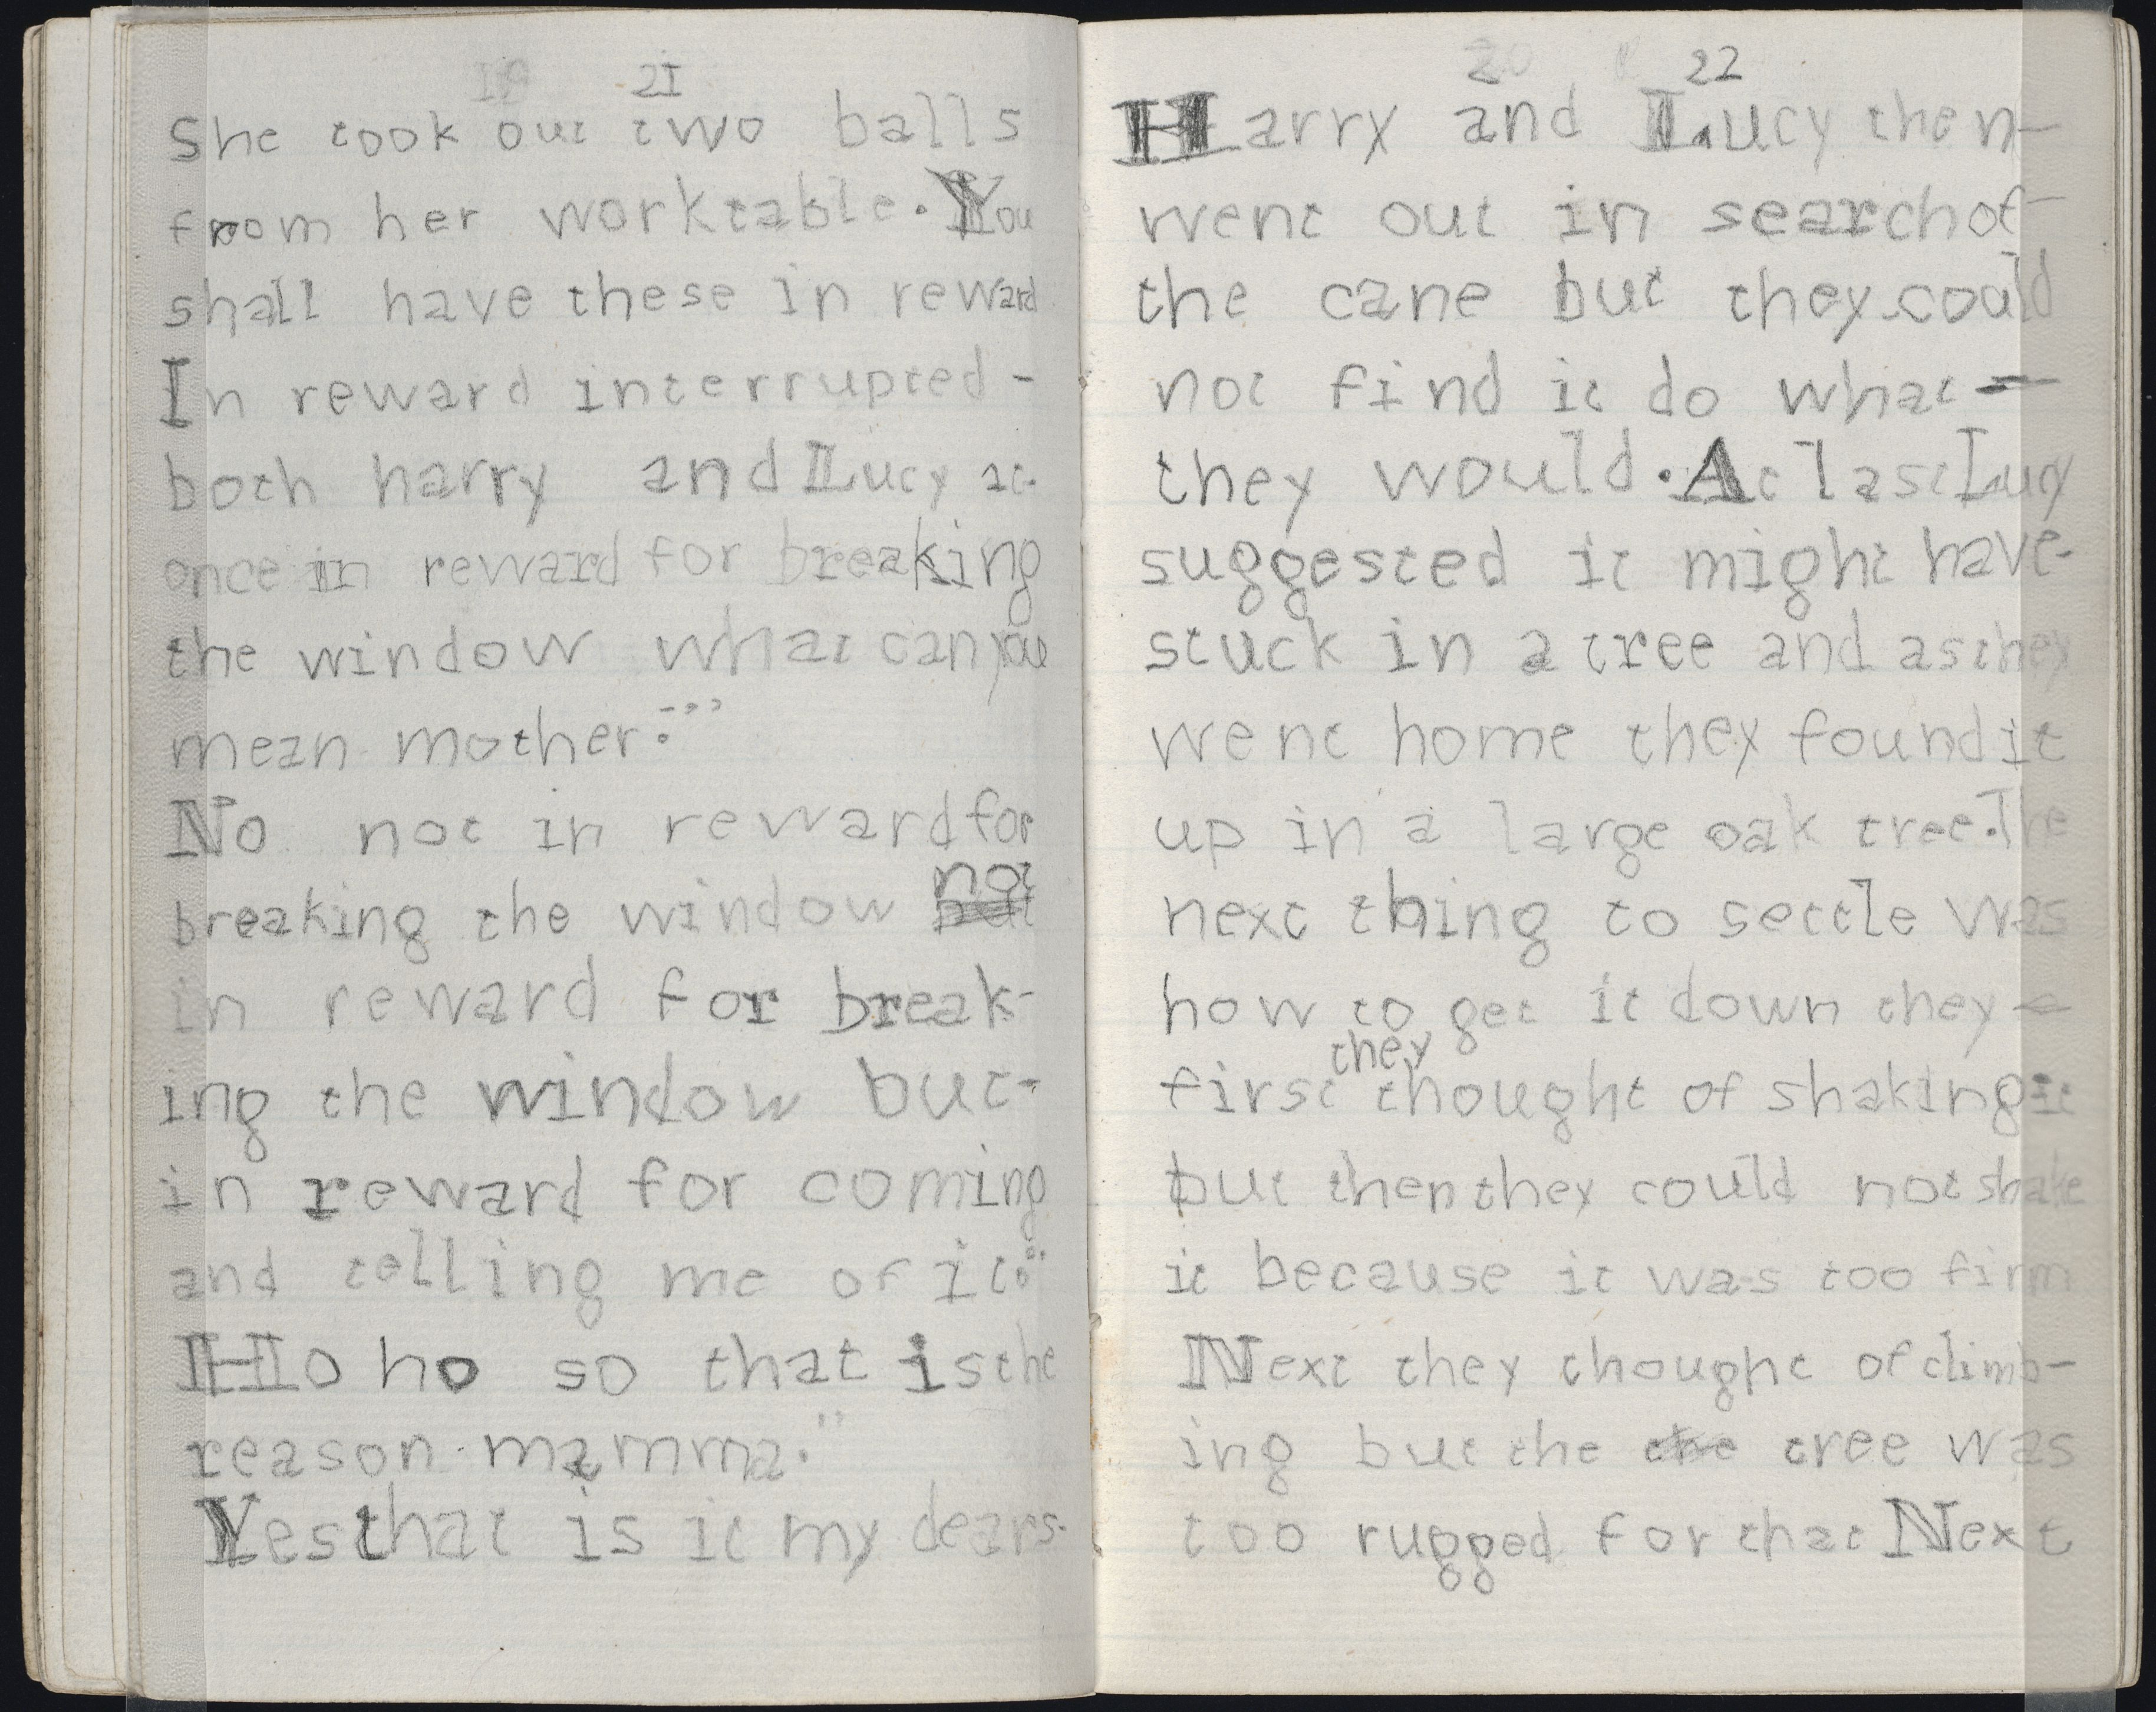 19 21
She took out two balls
from her worktable. You
shall have these in reward
In reward interrupted -
both harry and Lucy at
once in reward for breaking
the window what can you
mean mother."
No not in reward for
not
breaking the window but
in reward for break-
ing the window but-
in reward for coming
and telling me of it."
Ho ho so that is the
reason mamma."
Yes that is it my dears.
20 22
Harry and Lucy then-
went out in search of-
the cane but they could
not find it do what -
they would. At last Lucy
suggested it might have-
stuck in a tree and as they
went home they found it
up in a large oak tree. The
next thing to settle was
how to get it down they -
they
first thought of shaking it
but then they could not shake
it because it was too firm
Next they thought of climb-
ing but the the tree was
too rugged for that Next